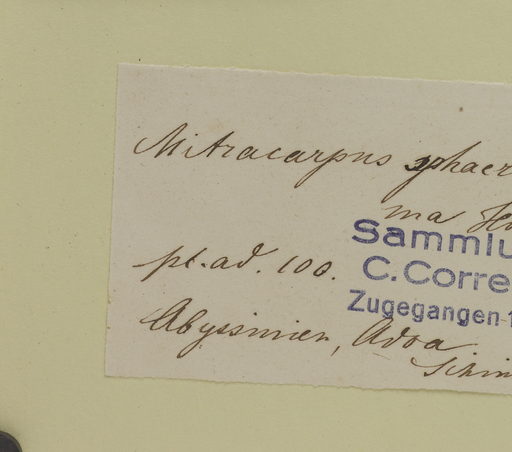 Mitracarpus sphaer
ma
Sammlu
pl. ad. 100.
C. Corre
Zugegangen 1
Abyssinien, Adoa
Schim